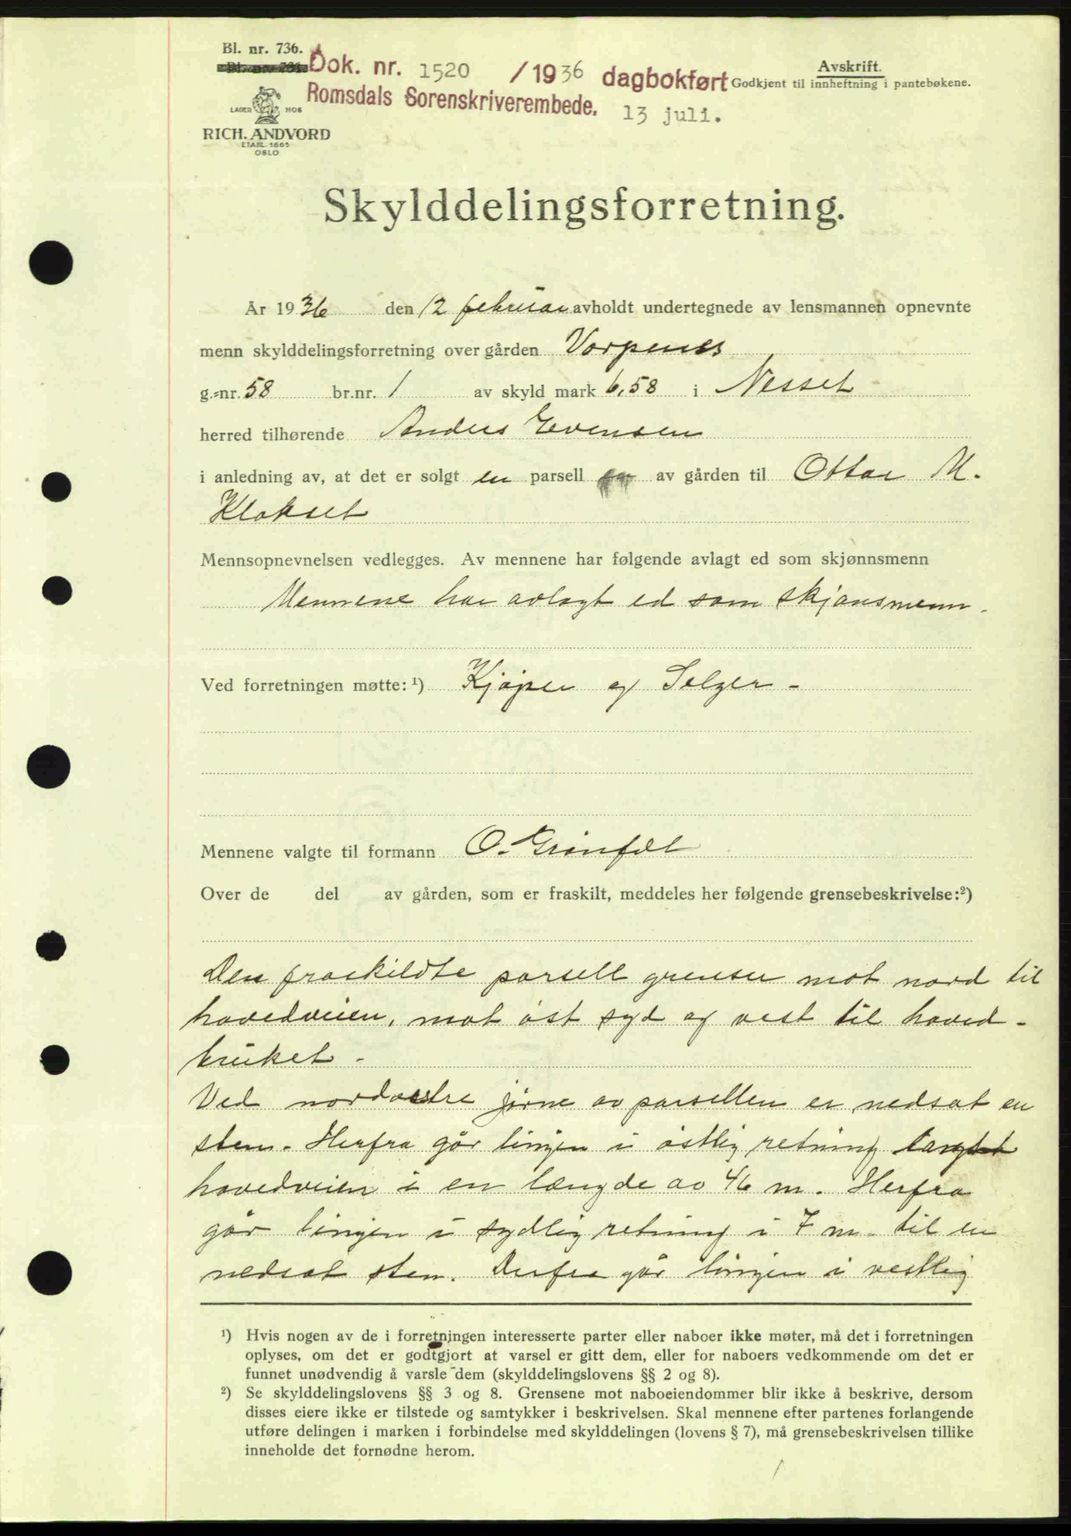 Bl. nr. 736.
Dok. nr. 1520 /1936 dagbokført
Romsdals Sorenskriverembede. 13 juli.
Avskrift.
Godkjent til innheftning i pantebøkene.
LAGER HOS
RICH. ANDVORD
ETABL. 1865
OSLO
Skylddelingsforretning.
År 1936 den 12 februar avholdt undertegnede av lensmannen opnevnte
menn skylddelingsforretning over gården Vorpenes
g.-nr. 58 br.nr. 1 av skyld mark 6,58 i Nesset
herred tilhørende Anders Evensen
i anledning av, at det er solgt en parsell av gården til Ottar M.
Klokset
Mennsopnevnelsen vedlegges. Av mennene har følgende avlagt ed som skjønnsmenn
Mennene har avlagt ed som skjønsmenn.
Ved forretningen møtte: ¹) Kjøper og Selger -
Mennene valgte til formann O. Grønfdt
Over de del av gården, som er fraskilt, meddeles her følgende grensebeskrivelse:²)
Den fraskildte parsell grenser mot nord til
hovedveien, mot øst syd og vest til hoved-
bruket -
Ved nordvestre jørne av parsellen er nedsat en
sten. Herfra går linjen i østlig retning langst
hovedveien i en længde av 46 m. Herfra
går linjen i sydlig retning i 7 m. til en
nedsat sten. Derfra går linjen i vestlig
¹) Hvis nogen av de i forretningen interesserte parter eller naboer ikke møter, må det i forretningen
oplyses, om det er godtgjort at varsel er gitt dem, eller for naboers vedkommende om det er
funnet unødvendig å varsle dem (skylddelingslovens §§ 2 og 8).
²) Se skylddelingslovens §§ 3 og 8. Grensene mot naboeiendommer blir ikke å beskrive, dersom
disses eiere ikke er tilstede og samtykker i beskrivelsen. Skal mennene efter partenes forlangende
utføre delingen i marken i forbindelse med skylddelingen (lovens § 7), må grensebeskrivelsen tillike
inneholde det fornødne herom.